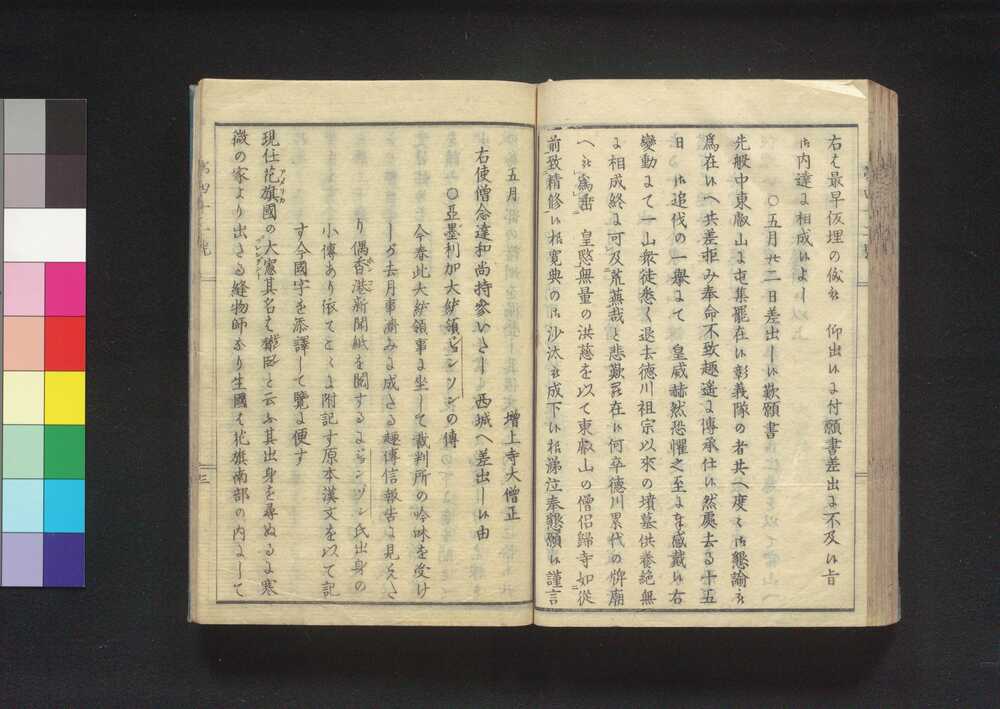 右は最早仮埋の儀被　仰出候に付願書差出に不及候旨
御内達に相成候よし
〇五月廿二日差出し候歎願書
先般中東叡山に屯集罷在候彰義隊の者共へ度々御懇諭被
為在候へ共差拒み奉命不致趣遥に傳承仕候然處去る十五
日　御追伐の一擧にて　皇威赫然恐懼之至に奉感戴候右
變動にて一山衆徒悉く退去德川祖宗以來の墳墓供養絶無
に相成終に可及荒蕪哉と悲歎罷在候何卒德川累代の牌廟
へ被為垂　皇愍無量の洪慈を以て東叡山の僧侶歸寺如從
前致精修候様寛典の御沙汰被成下候様涕泣奉懇願候謹言
五月　增上寺大僧正
右使僧念達和尚持參いたし西城へ差出し候由
〇亞墨利加大統領ジンソンの傳
今春此大統領事に坐して裁判所の吟味を受け
しが去月事濟みに成たる趣傳信報告に見えた
り偶香港新聞紙を閲するにジンソン氏出身の
小傳あり依てこゝに附記す原本漢文を以て記
す今國字を添譯して覽に便す
現任花旗國の大憲其名は
と云ふ其出身を尋ぬるに寒
微の家より出たる縫物師なり生國は花旗南部の内にして
アメリカ
三